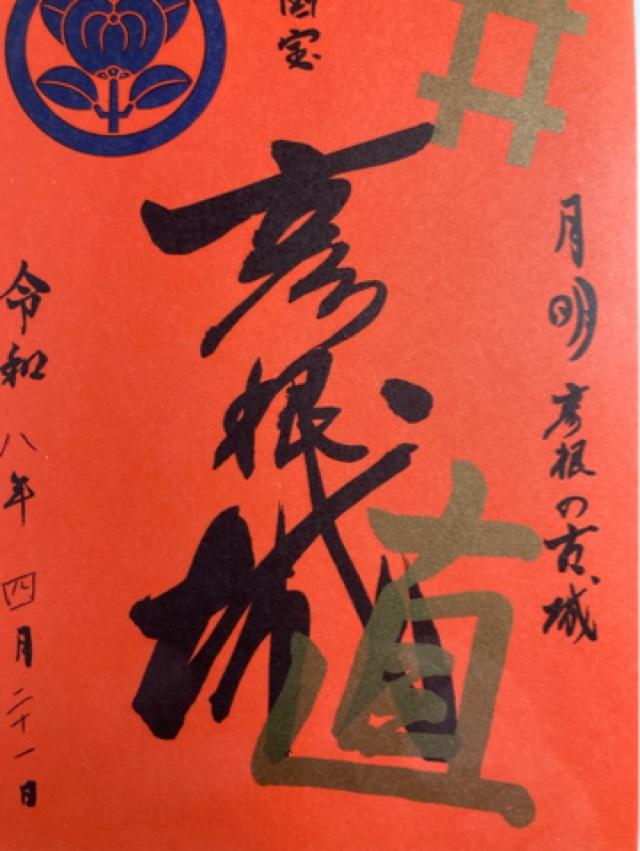 井
月明彦根の古城
国宝
彦根城
直
令和八年四月二十一日